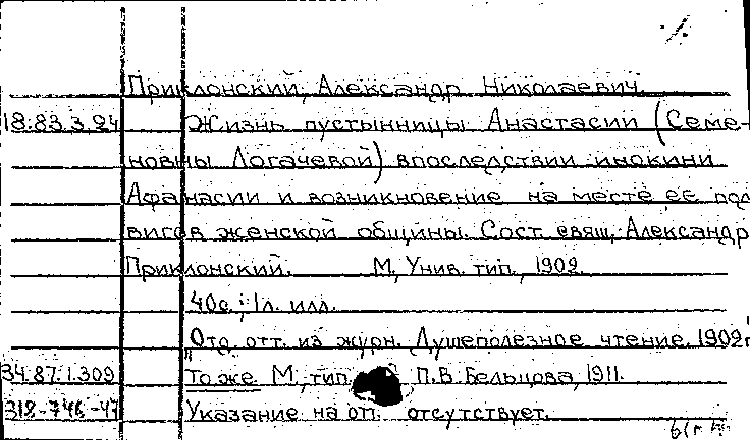 Приклонский, Александр Николаевич.
18.83.3.24 Жизнь пустынницы Анастасии (Семе-
новны Логачевой) впоследствии инокини
Афанасии и возникновение на месте ее под
вигов женской общины. Сост. свящ. Александр
Приклонский. М, Унив. тип., 1902.
40с.; 1л. илл.
Отд. отт. из журн. Душеполезное чтение, 1902г
34.87.1.309 То же М, тип. П.В. Бельцова, 1911.
Указание на отт. отсутствует.